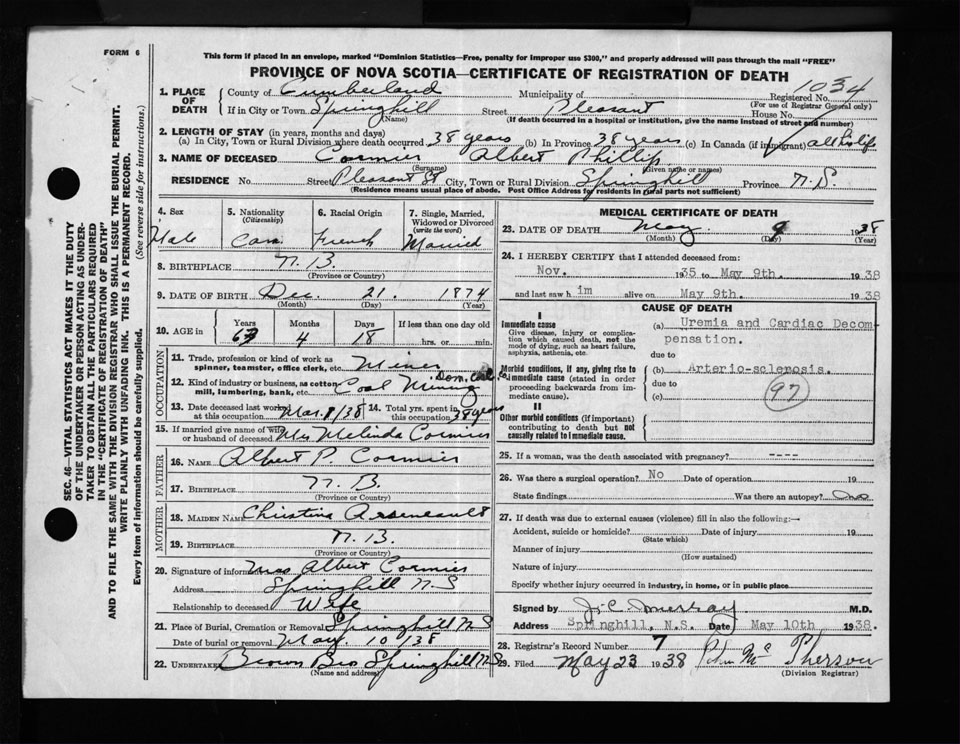 FORM 6
This form if placed in an envelope, marked "Dominion Statistics—Free, penalty for improper use $300," and properly addressed will pass through the mail "FREE"
PROVINCE OF NOVA SCOTIA—CERTIFICATE OF REGISTRATION OF DEATH
1. PLACE OF DEATH { County of Cumberland Municipality of Registered No. 1034
(For use of Registrar General only)
If in City or Town Springhill Street Pleasant House No.
(Name) (If death occurred in a hospital or institution, give the name instead of street and number)
2. LENGTH OF STAY (in years, months and days)
(a) In City, Town or Rural Division where death occurred 38 years (b) In Province 38 years (c) In Canada (if immigrant) all his life
3. NAME OF DECEASED Cormier Albert Phillip
(Surname) (Given name or names)
RESIDENCE No. Street Pleasant St City, Town or Rural Division Springhill Province N.S.
(Residence means usual place of abode. Post Office Address for residents in rural parts not sufficient)
SEC. 46—VITAL STATISTICS ACT MAKES IT THE DUTY
OF THE UNDERTAKER OR PERSON ACTING AS UNDER-
TAKER TO OBTAIN ALL THE PARTICULARS REQUIRED
IN THE "CERTIFICATE OF REGISTRATION OF DEATH"
AND TO FILE THE SAME WITH THE DIVISION REGISTRAR WHO SHALL ISSUE THE BURIAL PERMIT.
WRITE PLAINLY WITH UNFADING INK. THIS IS A PERMANENT RECORD.
Every item of information should be carefully supplied. (See reverse side for instructions.)
4. Sex Male
5. Nationality (Citizenship) Can
6. Racial Origin French
7. Single, Married, Widowed or Divorced (write the word) Married
8. BIRTHPLACE N.B.
(Province or Country)
9. DATE OF BIRTH Dec. 21. 1874
(Month) (Day) (Year)
10. AGE in { Years 63 Months 4 Days 18 If less than one day old
hrs. or min.
OCCUPATION
11. Trade, profession or kind of work as spinner, teamster, office clerk, etc. Miner
12. Kind of industry or business, as cotton mill, lumbering, bank, etc. Coal Mining Dom. Coal Co
13. Date deceased last worked at this occupation Mar. 8/38 14. Total yrs. spent in this occupation 38 years
15. If married give name of wife or husband of deceased Mrs Melinda Cormier
FATHER
16. NAME Albert P. Cormier
17. BIRTHPLACE N.B.
(Province or Country)
MOTHER
18. MAIDEN NAME Christina Arseneault
19. BIRTHPLACE N.B.
(Province or Country)
20. Signature of informant Mrs Albert Cormier
Address Springhill N.S
Relationship to deceased Wife
21. Place of Burial, Cremation or Removal Springhill N.S
Date of burial or removal May 10/38
22. UNDERTAKER Brown Bro Springhill N.S
(Name and address)
MEDICAL CERTIFICATE OF DEATH
23. DATE OF DEATH May 9 1938
(Month) (Day) (Year)
24. I HEREBY CERTIFY that I attended deceased from:
Nov. 1935 to May 9th. 1938
and last saw h im alive on May 9th. 1938
CAUSE OF DEATH
I
Immediate cause
Give disease, injury or complication which caused death, not the mode of dying, such as heart failure, asphyxia, asthenia, etc.
(a) Uremia and Cardiac Decom-
pensation.
due to
Morbid conditions, if any, giving rise to immediate cause (stated in order proceeding backwards from immediate cause).
(b) Arterio-sclerosis.
due to
(c) 97
II
Other morbid conditions (if important) contributing to death but not causally related to immediate cause.
25. If a woman, was the death associated with pregnancy? ----
26. Was there a surgical operation? No Date of operation 19
State findings Was there an autopsy? no
27. If death was due to external causes (violence) fill in also the following:—
Accident, suicide or homicide? Date of injury 19
(State which)
Manner of injury
(How sustained)
Nature of injury
Specify whether injury occurred in industry, in home, or in public place
Signed by J. C. Murray M.D.
Address Springhill, N.S. Date May 10th 1938.
28. Registrar's Record Number 7
29. Filed May 23 1938 McPherson
(Division Registrar)